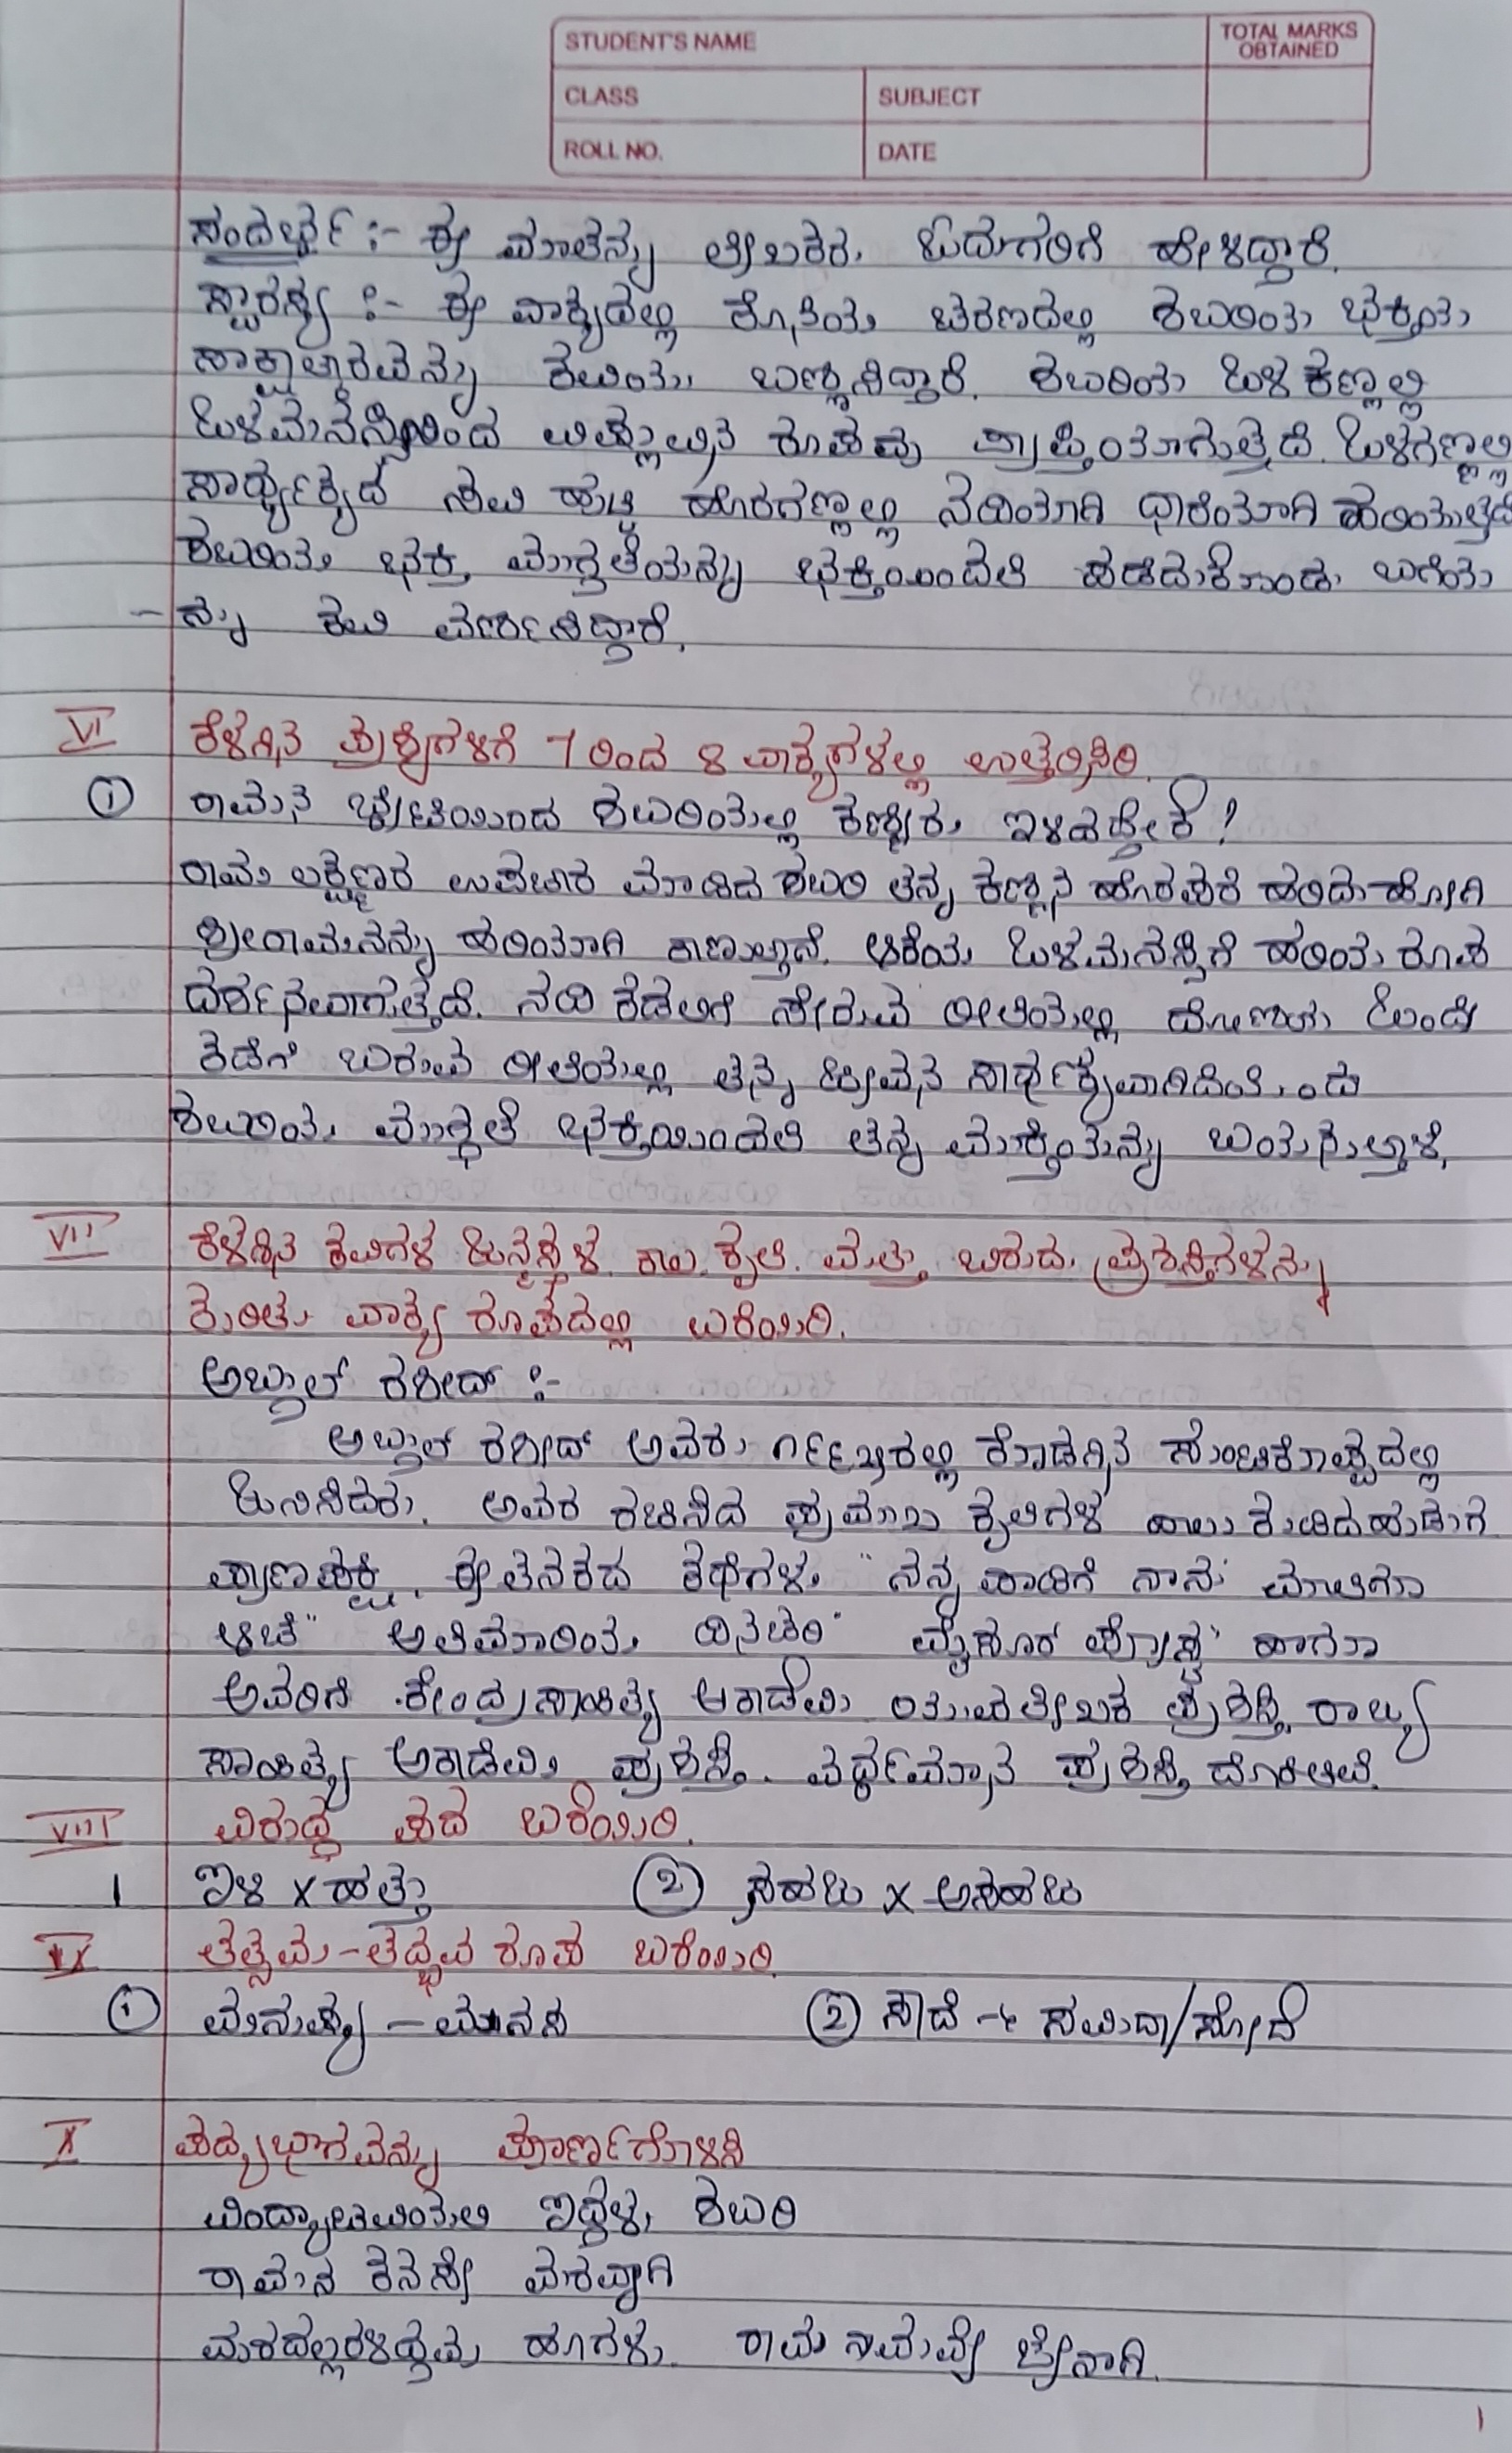 STUDENT'S NAME
TOTAL MARKS OBTAINED
CLASS
SUBJECT
ROLL NO.
DATE
ಸಂದರ್ಭ :- ಈ ಮಾತನ್ನು ಲೇಖಕರು ಓದುಗರಿಗೆ ಹೇಳಿದ್ದಾರೆ.
ಸ್ವಾರಸ್ಯ :- ಈ ವಾಕ್ಯದಲ್ಲಿ ಕೊನೆಯ ಚರಣದಲ್ಲಿ ಶಬರಿಯ ಭಕ್ತಿಯ
ಸಾಕ್ಷಾತ್ಕಾರವನ್ನು ಕವಿಯು ಬಣ್ಣಿಸಿದ್ದಾರೆ. ಶಬರಿಯ ಒಳ ಕಣ್ಣಲ್ಲಿ
ಒಳಮನಸ್ಸಿನಿಂದ ರೂಪವು ಪ್ರಾಪ್ತಿಯಾಗುತ್ತದೆ. ಒಳಗಣ್ಣಲ್ಲಿ
ಸಾರ್ಥಕ್ಯದ ಸವಿ ಹೆಚ್ಚಿ ಹೊರಗಣ್ಣಲ್ಲಿ ನದಿಯಾಗಿ ಧಾರೆಯಾಗಿ ಹರಿಯುತ್ತದೆ
ಶಬರಿಯ ಭಕ್ತಿ ಮುಗ್ಧತೆಯನ್ನು ಭಕ್ತಿಯಿಂದಲಿ ಪಡೆದುಕೊಂಡು ಬಗೆಯ
- ನ್ನು ಕವಿ ವರ್ಣಿಸಿದ್ದಾರೆ.
VI ಕೆಳಗಿನ ಪ್ರಶ್ನೆಗಳಿಗೆ 7 ರಿಂದ 8 ವಾಕ್ಯಗಳಲ್ಲಿ ಉತ್ತರಿಸಿರಿ.
① ರಾಮನ ಭೇಟಿಯಿಂದ ಶಬರಿಯಲ್ಲಿ ಕಣ್ಣೀರು ಇಳಿದದ್ದೇಕೆ?
ರಾಮ ಲಕ್ಷ್ಮಣರ ಉಪಚಾರ ಮಾಡಿದ ಶಬರಿ ತನ್ನ ಕಣ್ಣಿನ ಹೊರಪರೆ ಹರಿದು ಹೋಗಿ
ಶ್ರೀರಾಮನನ್ನು ಹರಿಯಾಗಿ ಕಾಣುತ್ತಾಳೆ. ಆಕೆಯ ಒಳಮನಸ್ಸಿಗೆ ಹರಿಯ ರೂಪ
ದರ್ಶನವಾಗುತ್ತದೆ. ನದಿ ಕಡಲಿಗೆ ಸೇರುವ ರೀತಿಯಲ್ಲಿ ದೋಣಿಯು ಒಂದೇ
ಕಡೆಗೆ ಬರುವ ರೀತಿಯಲ್ಲಿ ತನ್ನ ಜೀವನ ಸಾರ್ಥಕ್ಯವಾಗಿದೆಯೆಂದು
ಶಬರಿಯು ಮುಗ್ಧತೆ ಭಕ್ತಿಯಿಂದಲಿ ತನ್ನ ಮುಕ್ತಿಯನ್ನು ಬಯಸುತ್ತಾಳೆ.
VII ಕೆಳಗಿನ ಕವಿಗಳ ಜನ್ಮಸ್ಥಳ ಕಾಲ ಕೃತಿ ಮತ್ತು ಬಿರುದು ಪ್ರಶಸ್ತಿಗಳನ್ನು
ಕುರಿತು ವಾಕ್ಯ ರೂಪದಲ್ಲಿ ಬರೆಯಿರಿ.
ಅಬ್ದುಲ್ ರಶೀದ್ :-
ಅಬ್ದುಲ್ ರಶೀದ್ ಅವರು ೧೯೬೫ರಲ್ಲಿ ಕೊಡಗಿನ ಸುಂಟಿಕೊಪ್ಪದಲ್ಲಿ
ಜನಿಸಿದರು. ಅವರ ರಚಿಸಿದ ಪ್ರಮುಖ ಕೃತಿಗಳು ಹಾಲು ಕುಡಿದ ಹುಡುಗ
ಪ್ರಾಣಪಕ್ಷಿ. ಈ ತನಕದ ಕಥೆಗಳು "ನನ್ನ ಪಾಡಿಗೆ ನಾನು" ಮಾತಿಗೂ
ಆಚೆ" ಅಲೆಮಾರಿಯ ದಿನಚರಿ" ಮೈಸೂರ್ ಪೋಸ್ಟ್" ಹಾಗೂ
ಅವರಿಗೆ ಕೇಂದ್ರ ಸಾಹಿತ್ಯ ಅಕಾಡೆಮಿ ಯುವಲೇಖಕ ಪ್ರಶಸ್ತಿ. ರಾಜ್ಯ
ಸಾಹಿತ್ಯ ಅಕಾಡೆಮಿ ಪ್ರಶಸ್ತಿ. ವರ್ಧಮಾನ ಪ್ರಶಸ್ತಿ ದೊರಕಿವೆ.
VIII ವಿರುದ್ಧ ಪದ ಬರೆಯಿರಿ.
1 ಇಳಿ x ಹತ್ತು ② ಸಹಜ x ಅಸಹಜ
IX ತತ್ಸಮ - ತದ್ಭವ ರೂಪ ಬರೆಯಿರಿ
① ಮನುಷ್ಯ - ಮಾನಸ ② ಸಾದೆ → ಸಮಿದಾ/ಸೋದೆ
X ಪದ್ಯಭಾಗವನ್ನು ಪೂರ್ಣಗೊಳಿಸಿ
ವಿಂಧ್ಯಾಟವಿಯಲಿ ಇದ್ದಳು ಶಬರಿ
ರಾಮನ ಕನಸೇ ವರವಾಗಿ
ಮರದಲ್ಲರಳಿದ್ದವು ಹೂಗಳು ರಾಮ ನಾಮವೇ ಜೇನಾಗಿ.
1